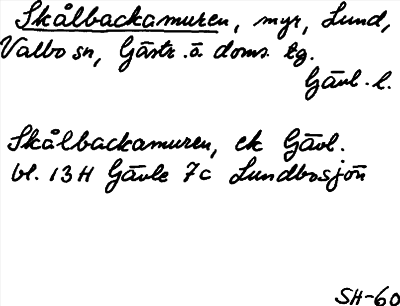 Skålbackamuren, myr, Lund,
Valbo sn, Gästr. ö doms. tg.
Gävl. l.
Skålbackamuren, ek Gävl.
bl. 13H Gävle 7c Lundbosjön
SH-60